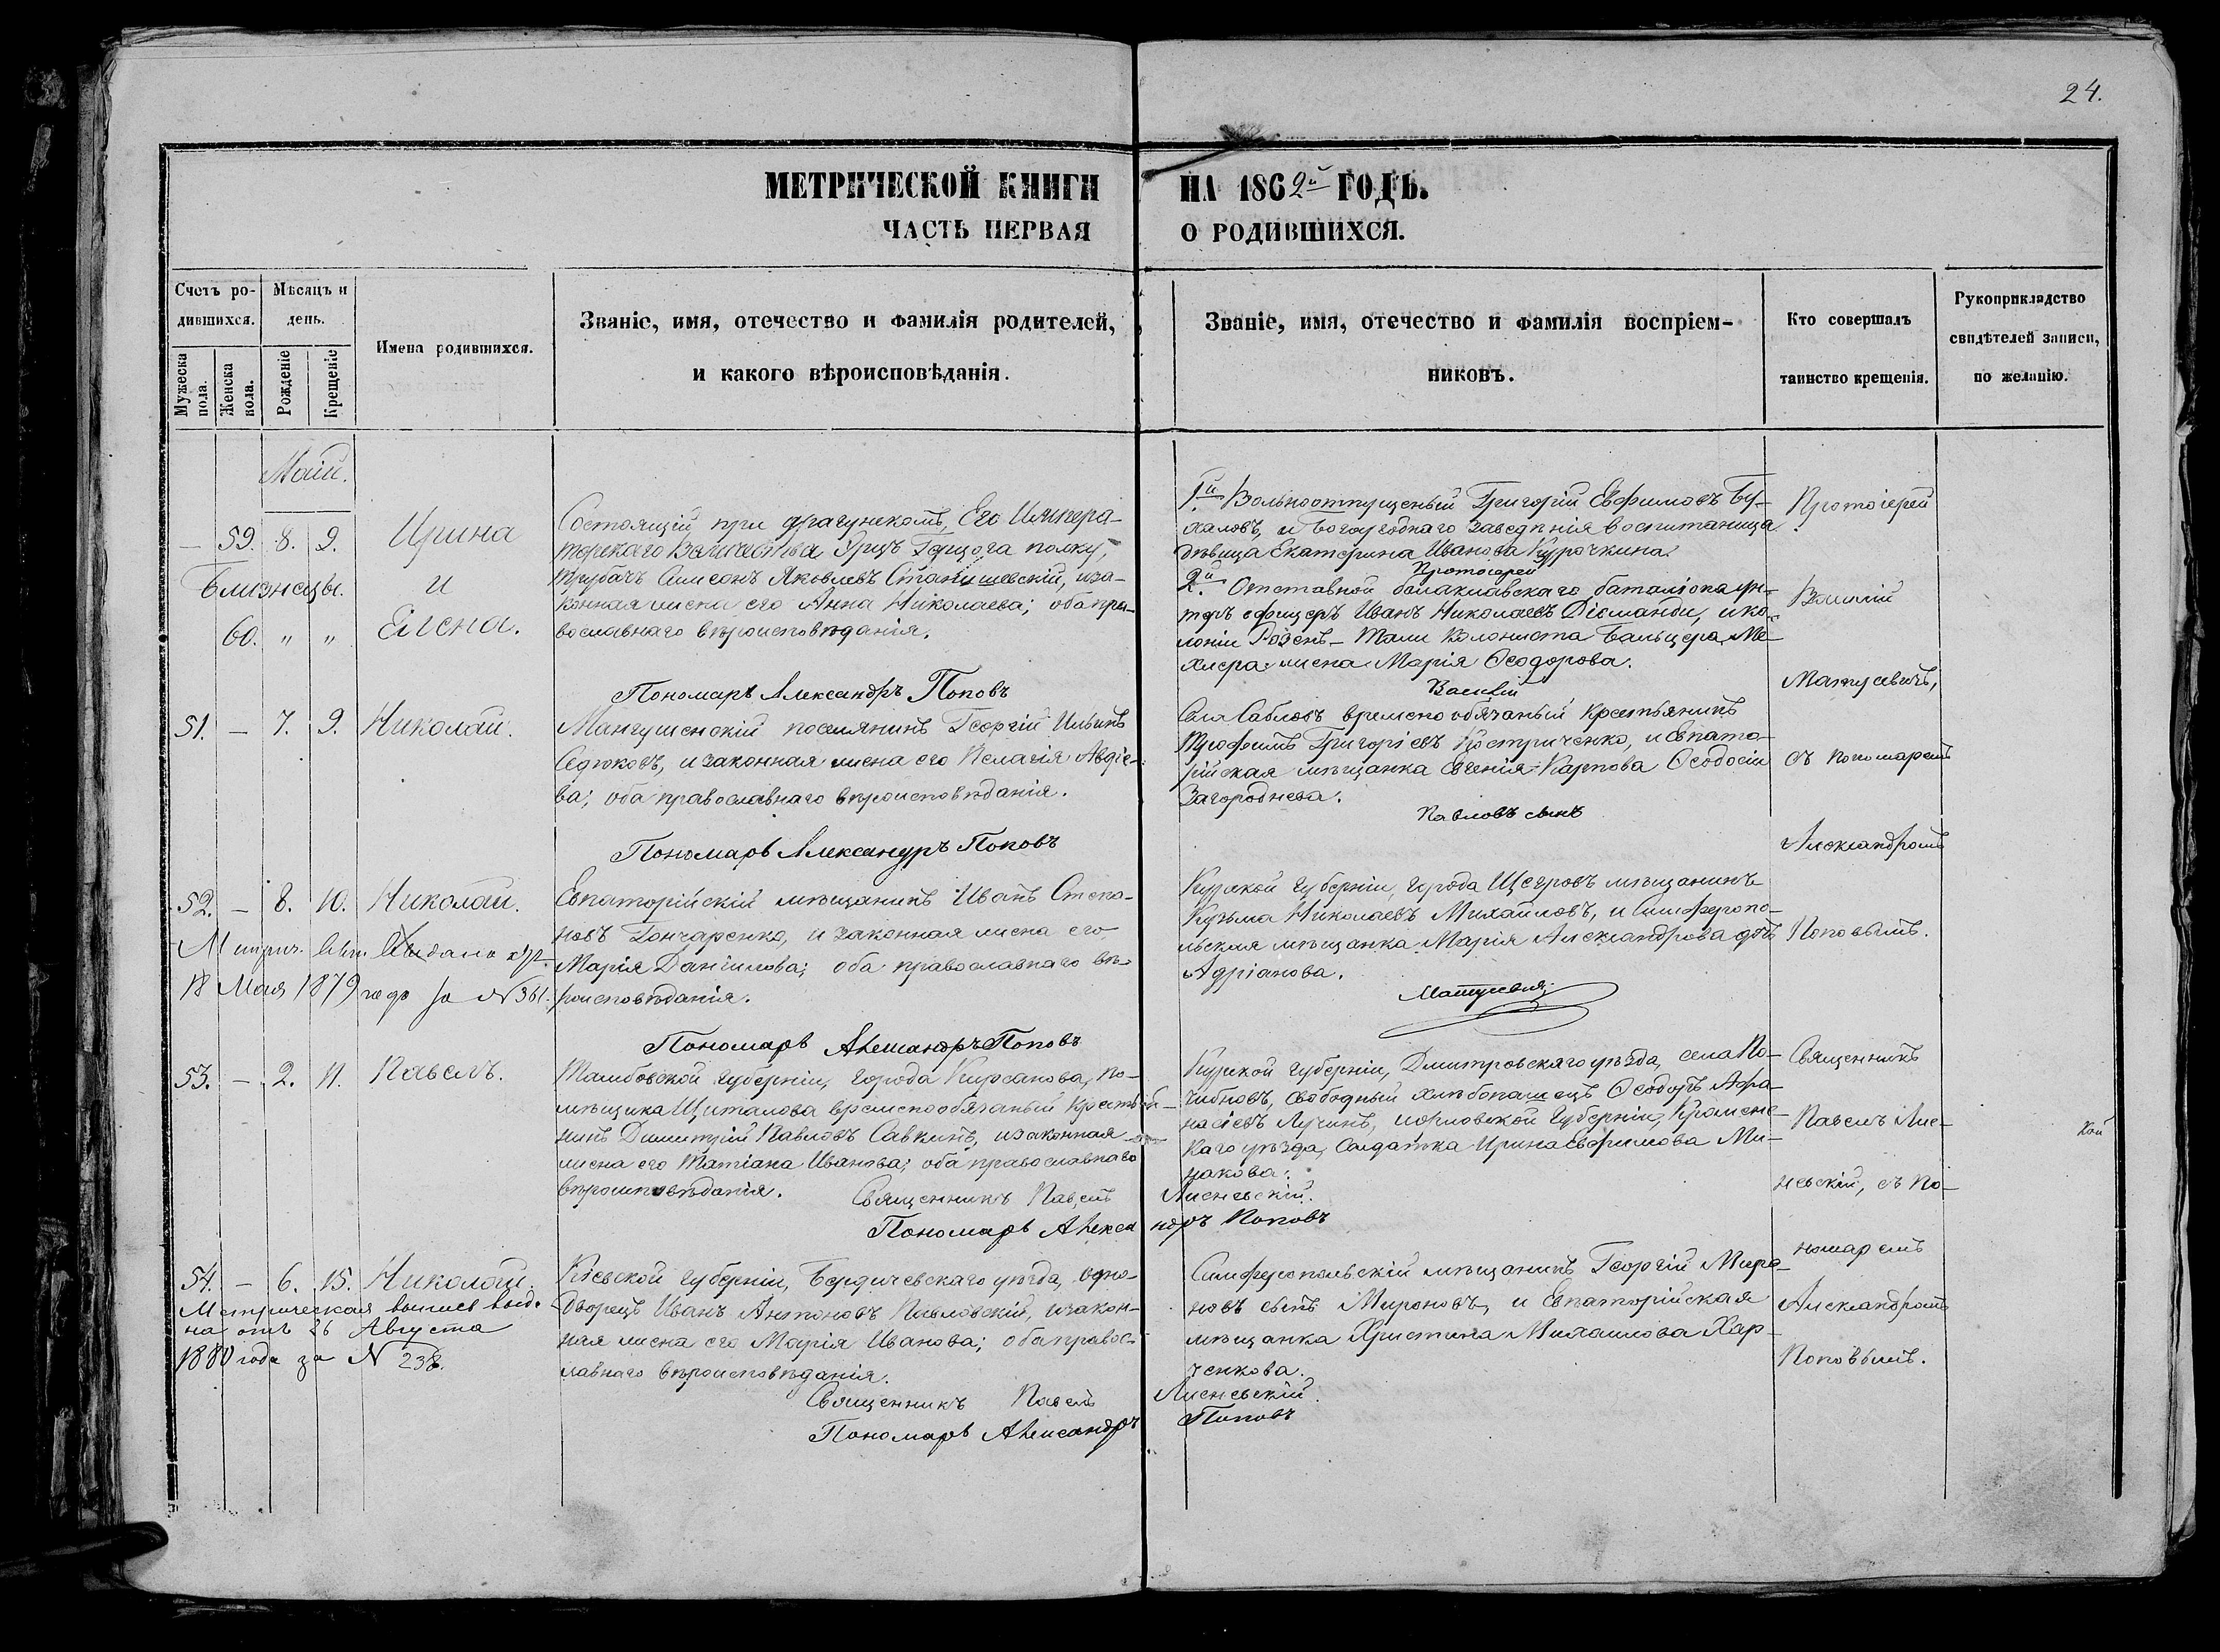 24.
МЕТРИЧЕСКОЙ КНИГИ НА 1862й ГОДЪ.
ЧАСТЬ ПЕРВАЯ О РОДИВШИХСЯ.
Счетъ ро-
дившихся.
Мужеска пола.
Женска пола.
Мѣсяцъ и
день.
Рожденіе
Крещеніе
Имена родившихся.
Званіе, имя, отечество и фамилія родителей,
и какого вѣроисповѣданія.
Званіе, имя, отечество и фамилія воспріем-
никовъ.
Кто совершалъ
таинство крещенія.
Рукоприкладство
свидѣтелей записи,
по желанію.
Маій.
— 59. 8. 9. Ирина
Близнецы. и
60. " " Елена.
Состоящій при драгунскомъ, Его Импера-
торскаго Величества Эрцъ Герцога полку,
трубачъ Симеонъ Яковлевъ Станишевскій, иза-
конная жена его Анна Николаева; оба пра-
вославнаго вѣроисповѣданія.
Пономарь Александръ Поповъ
1й Вольноотпущеный Григорій Евфимовъ Бу-
халовъ, и Богоугоднаго Заведѣнія воспитанница
дѣвица Екатерина Иванова Курочкина.
Протоіерей
2й Отставной балаклавскаго баталіона ун-
теръ офицеръ Иванъ Николаевъ Діоманди, и ко-
лоніи Розенъ-Тали колониста Бальцера Ме-
хлера жена Марія Ѳеодорова.
Василій
Протоіерей
Василій
Матусевичъ,
съ пономаремъ
Александромъ
Поповымъ.
51. — 7. 9. Николай.
Мангушенскій поселянинъ Георгій Ильинъ
Седюковъ, и законная жена его Пелагія Авдіе-
ва; оба православнаго вѣроисповѣданія.
Пономарь Александръ Поповъ
Села Сабловъ временно обязаный крестьянинъ
Трофимъ Григоріевъ Костриченко, и Евпато-
рійская мѣщанка Евгенія Карпова Ѳеодосіи
Загороднева.
Павловъ сынъ
52. — 8. 10. Николай.
Метрич. выдано
18 Мая 1879 года за N 361.
Евпаторійскій мѣщанинъ Иванъ Степа-
новъ Гончаренко, и законная жена его
Марія Данилова; оба православнаго вѣ-
роисповѣданія.
Пономарь Александръ Поповъ
Курской губерніи, города Щегровъ мѣщанинъ
Кузьма Николаевъ Михайловъ, и Симферопо-
льская мѣщанка Марія Александрова дочь
Адріанова.
Матусевич.
53. — 2. 11. Павелъ.
Тамбовской губерніи, города Кирсанова, по-
мѣщика Щиталова временнообязаный крестья-
нинъ Димитрій Павловъ Савкинъ, и законная
жена его Татіана Иванова; оба православнаго
вѣроисповѣданія.
Священникъ Павелъ Лисневскій.
Пономарь Александръ Поповъ
Курской губерніи, Дмитровскаго уѣзда, села По-
чибновъ, свободный хлѣбопашецъ Ѳеодотъ Афа-
насіевъ Лучинъ, и орловской губерніи, Кроменс-
каго уѣзда, солдатка Ирина Евфимова Ми-
накова.
Священникъ
Павелъ Лис-
невскій, съ по-
номаремъ
Александромъ
Поповымъ.
кой
54. — 6. 15. Николай.
Метрическая выпись выда-
на отъ 26 Августа
1880 года за N 238.
Кіевской губерніи, Бердичевскаго уѣзда, одно-
дворецъ Иванъ Антоновъ Павловскій, и закон-
ная жена его Марія Иванова; оба правос-
лавнаго вѣроисповѣданія.
Священникъ Павелъ Лисневскій.
Пономарь Александръ Поповъ
Симферопольскій мѣщанинъ Георгій Миро-
новъ сынъ Мироновъ, и Евпаторійская
мѣщанка Христина Михаилова Хар-
ченкова.